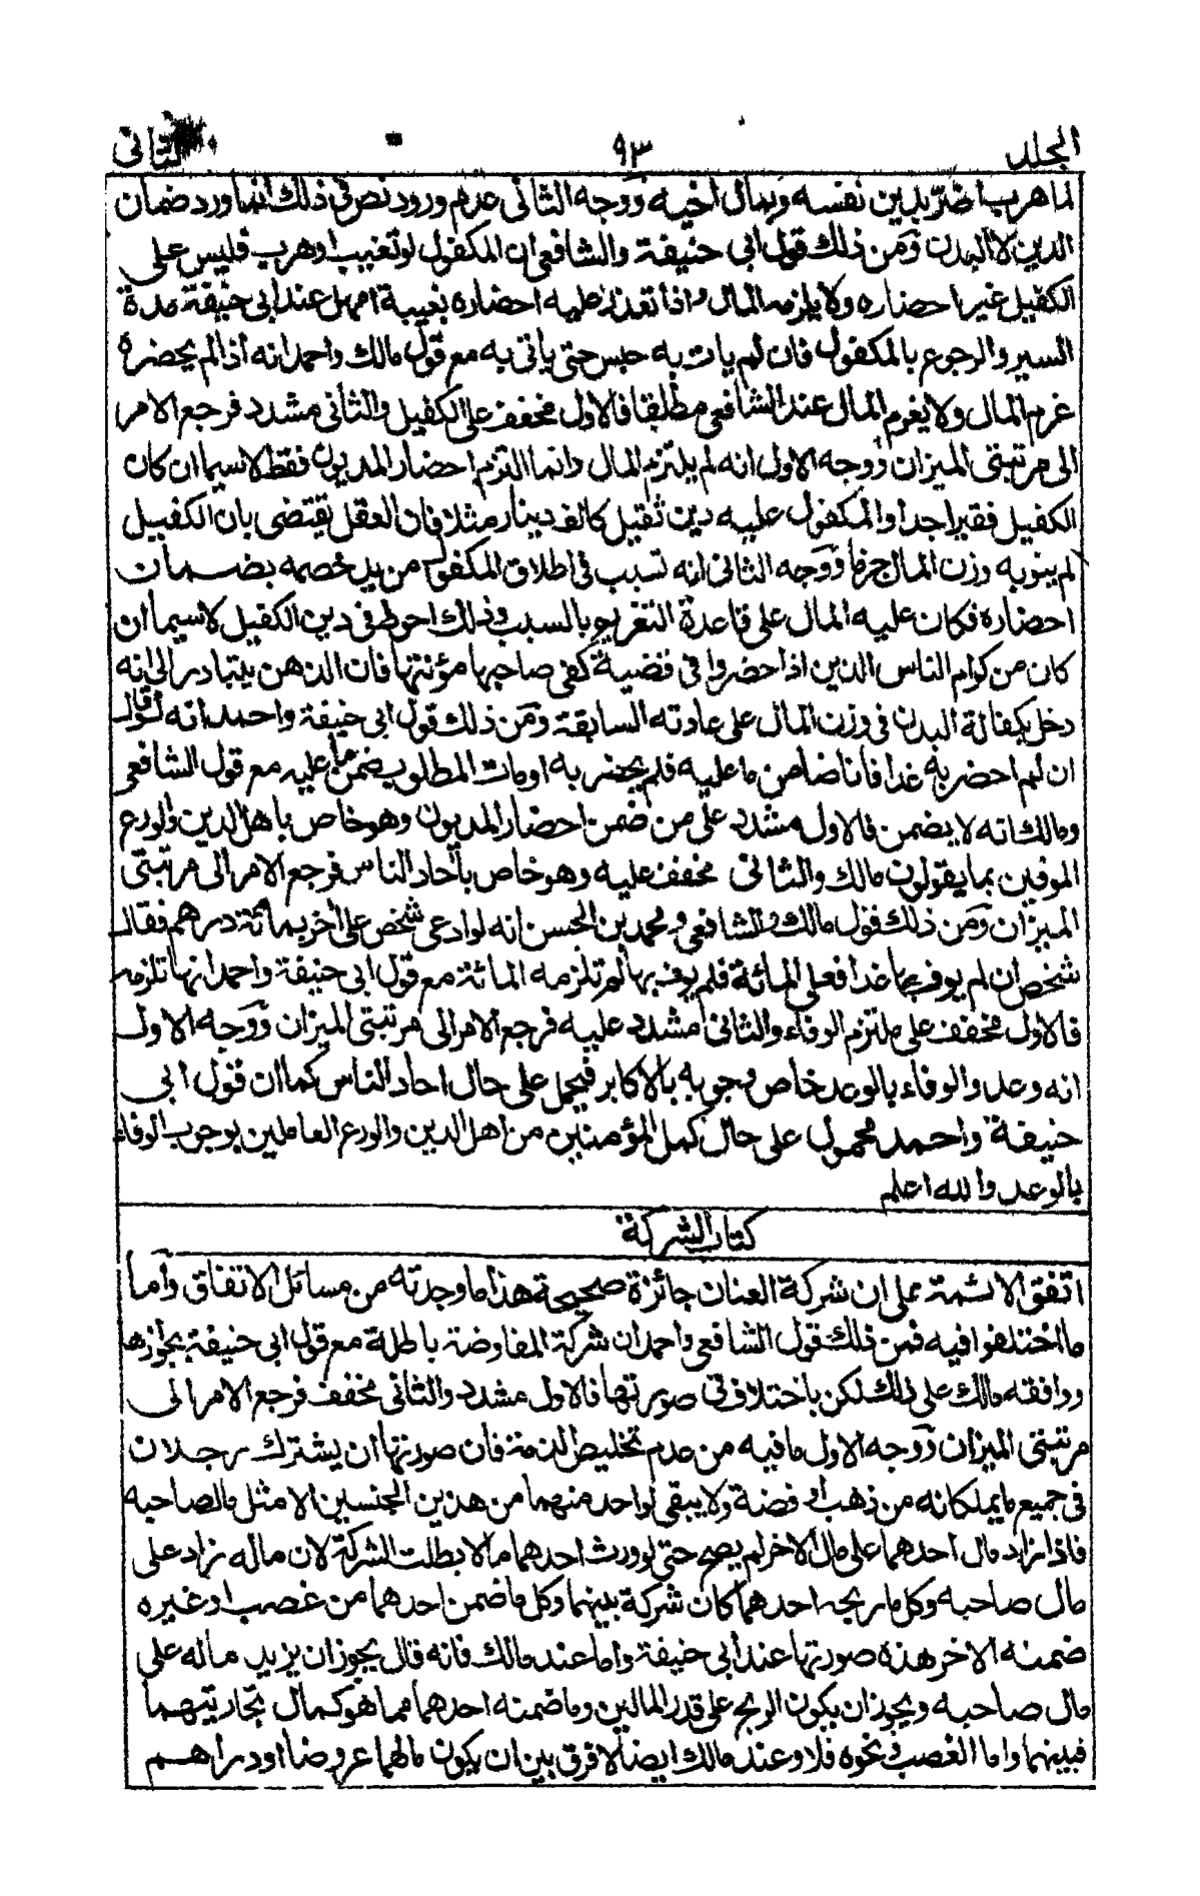 المجلد ٩٣ الثاني
لما هرب اضرّ بدين نفسه وبمال اخيه ووجه الثانى عدم ورود نص فى ذلك انما ورد ضمان
الدين لا البدن ومن ذلك قول ابى حنيفة والشافعى ان المكفول لو تغيب او هرب فليس على
الكفيل غير احضاره ولا يلزمه المال واذا تعذر عليه احضاره بغيبة امهل عند ابى حنيفة مدة
السير والرجوع بالمكفول فان لم يات به حبس حتى ياتى به مع قول مالك واحمد انه اذا لم يحضره
غرم المال ولا يغرم المال عند الشافعى مطلقا فالاول مخفف على الكفيل والثانى مشدد فرجع الامر
الى مرتبتى الميزان ووجه الاول انه لم يلتزم المال وانما التزم احضار المديون فقط لا سيما ان كان
الكفيل فقيرا جدا والمكفول عليه دين ثقيل كالف دينار مثلا فان العقل يقتضى بان الكفيل
لم ينو به وزن المال جزما ووجه الثانى انه تسبب فى اطلاق المكفول من يد خصمه بضمان
احضاره فكان عليه المال على قاعدة التغريم بالسبب وذلك احوط فى دين الكفيل لا سيما ان
كان من كرام الناس الذين اذا حضروا فى قضية كفى صاحبها مؤنتها فان الذهن يتبادر الى انه
دخل بكفالة البدن فى وزن المال على عادته السابقة ومن ذلك قول ابى حنيفة واحمد انه لو قال
ان لم احضر به غدا فانا ضامن ما عليه فلم يحضر به او مات المطلوب ضمن ما عليه مع قول الشافعى
ومالك انه لا يضمن فالاول مشدد على من ضمن احضار المديون وهو خاص باهل الدين والورع
الموفين بما يقولون مالك والثانى مخفف عليه وهو خاص بآحاد الناس فرجع الامر الى مرتبتى
الميزان ومن ذلك قول مالك والشافعى ومحمد بن الحسن انه لو ادعى شخص على آخر بمائة درهم فقال
شخص ان لم يوف بها غدا فعلى المائة فلم يوف بها لم تلزمه المائة مع قول ابى حنيفة واحمد انها تلزمه
فالاول مخفف على ملتزم الوفاء والثانى مشدد عليه فرجع الامر الى مرتبتى الميزان ووجه الاول
انه وعد والوفاء بالوعد خاص وجوبه بالاكابر فيحمل على حال احاد الناس كما ان قول ابى
حنيفة واحمد محمول على حال كمل المؤمنين من اهل الدين والورع العاملين بوجوب الوفاء
بالوعد والله اعلم
كتاب الشركة
اتفق الائمة على ان شركة العنان جائزة صحيحة هذا ما وجدته من مسائل الاتفاق واما
ما اختلفوا فيه فمن ذلك قول الشافعى واحمد ان شركة المفاوضة باطلة مع قول ابى حنيفة بجوازها
ووافقه مالك على ذلك لكن باختلاف فى صورتها فالاول مشدد والثانى مخفف فرجع الامر الى
مرتبتى الميزان ووجه الاول ما فيه من عدم تخليص الذمة فان صورتها ان يشترك رجلان
فى جميع ما يملكانه من ذهب او فضة ولا يبقى لواحد منهما من هذين الجنسين الا مثل مالصاحبه
فاذا زاد مال احدهما على مال الاخر لم يصح حتى لو ورث احدهما مالا بطلت الشركة لان ماله زاد على
مال صاحبه وكل ما ربحه احدهما كان شركة بينهما وكل ما ضمن احدهما من غصب او غيره
ضمنه الاخر هذه صورتها عند ابى حنيفة واما عند مالك فانه قال يجوز ان يزيد ماله على
مال صاحبه ويجوز ان يكون الربح على قدر المالين وما ضمنه احدهما مما هو كمال تجارتهما
فبينهما واما الغصب ونحوه فلا وعند مالك ايضا لا فرق بين ان يكون مالهما عروضا او دراهم